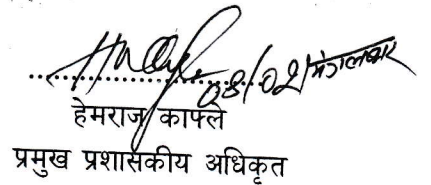 ०४/०२/मंगलबार
हेमराज काफ्ले
प्रमुख प्रशासकीय अधिकृत